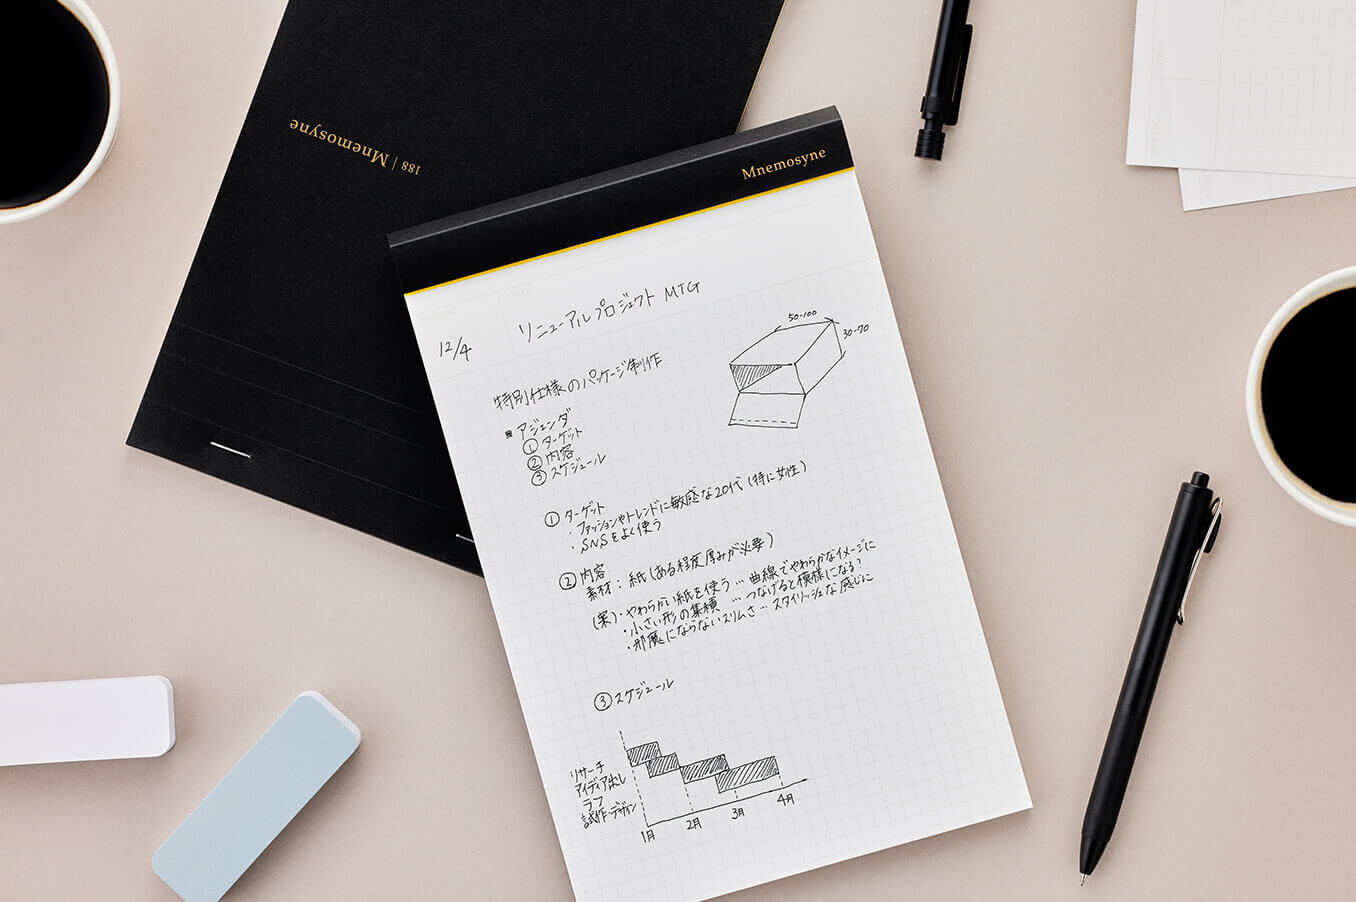 188 | Mnemosyne
Mnemosyne
12/4
リニューアルプロジェクト MTG
特別仕様のパッケージ制作
50-100
30-70
■ アジェンダ
① ターゲット
② 内容
③ スケジュール
① ターゲット
・ファッションやトレンドに敏感な20代(特に女性)
・SNSをよく使う
② 内容
素材: 紙(ある程度厚みが必要)
(案)・やわらかい紙を使う … 曲線でやわらかなイメージに
・小さい形の集積 … つなげると模様になる?
・邪魔にならないスリムさ … スタイリッシュな感じに
③ スケジュール
リサーチ
アイディア出し
ラフ
試作・デザイン
1月 2月 3月 4月